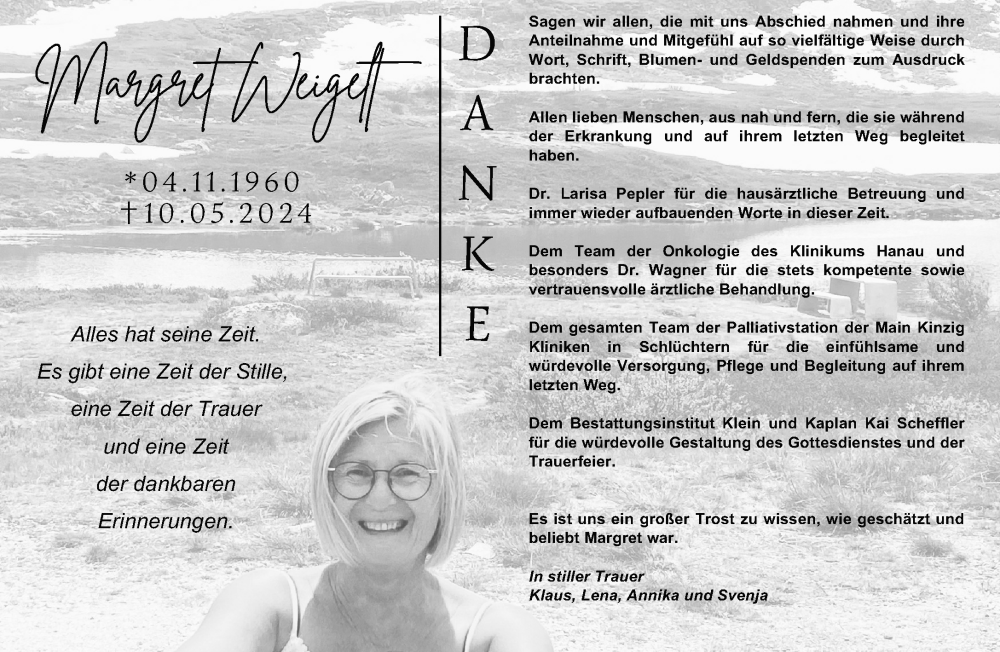 Margret Weigelt
*04.11.1960
†10.05.2024
Alles hat seine Zeit.
Es gibt eine Zeit der Stille,
eine Zeit der Trauer
und eine Zeit
der dankbaren
Erinnerungen.
D
A
N
K
E
Sagen wir allen, die mit uns Abschied nahmen und ihre
Anteilnahme und Mitgefühl auf so vielfältige Weise durch
Wort, Schrift, Blumen- und Geldspenden zum Ausdruck
brachten.
Allen lieben Menschen, aus nah und fern, die sie während
der Erkrankung und auf ihrem letzten Weg begleitet
haben.
Dr. Larisa Pepler für die hausärztliche Betreuung und
immer wieder aufbauenden Worte in dieser Zeit.
Dem Team der Onkologie des Klinikums Hanau und
besonders Dr. Wagner für die stets kompetente sowie
vertrauensvolle ärztliche Behandlung.
Dem gesamten Team der Palliativstation der Main Kinzig
Kliniken in Schlüchtern für die einfühlsame und
würdevolle Versorgung, Pflege und Begleitung auf ihrem
letzten Weg.
Dem Bestattungsinstitut Klein und Kaplan Kai Scheffler
für die würdevolle Gestaltung des Gottesdienstes und der
Trauerfeier.
Es ist uns ein großer Trost zu wissen, wie geschätzt und
beliebt Margret war.
In stiller Trauer
Klaus, Lena, Annika und Svenja